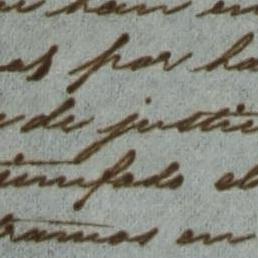 han en
os por ha
de justi
iunfado el
tramos en